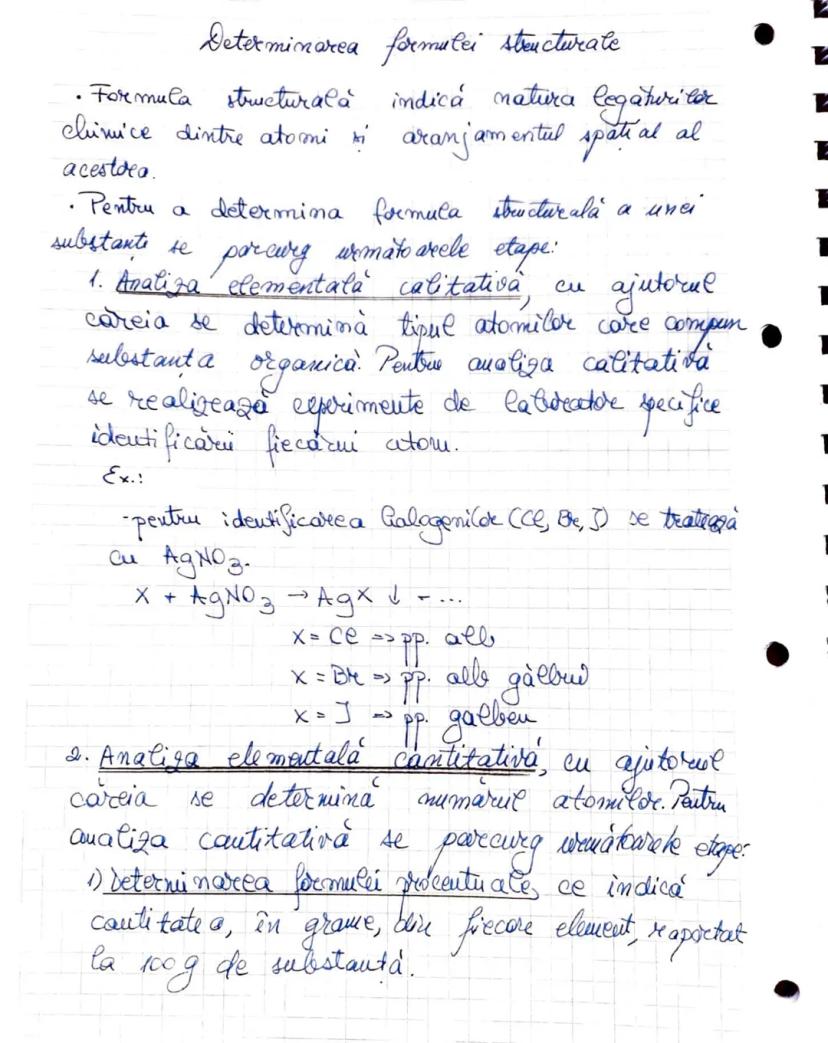 Determinarea formulei structurale
· Formula structurală indică natura legăturilor
chimice dintre atomi și aranjamentul spațial al
acestora.
· Pentru a determina formula structurală a unei
substanți se parcurg următoarele etape:
1. Analiza elementală calitativă, cu ajutorul
căreia se determină tipul atomilor care compun
substanța organică. Pentru analiza calitativă
se realizează experimente de laborator specifice
identificării fiecărui atom.
Ex.:
-pentru identificarea halogenilor (Cl, Br, I) se tratează
cu AgNO3.
X + AgNO3 → AgX ↓ + ...
X = Cl => pp. alb
X = Br => pp. alb gălbui
X = I => pp. galben
2. Analiza elementală cantitativă, cu ajutorul
căreia se determină numărul atomilor. Pentru
analiza cantitativă se parcurg următoarele etape:
1) Determinarea formulei procentuale, ce indică
cantitatea, în grame, din fiecare element, raportat
la 100 g de substanță.